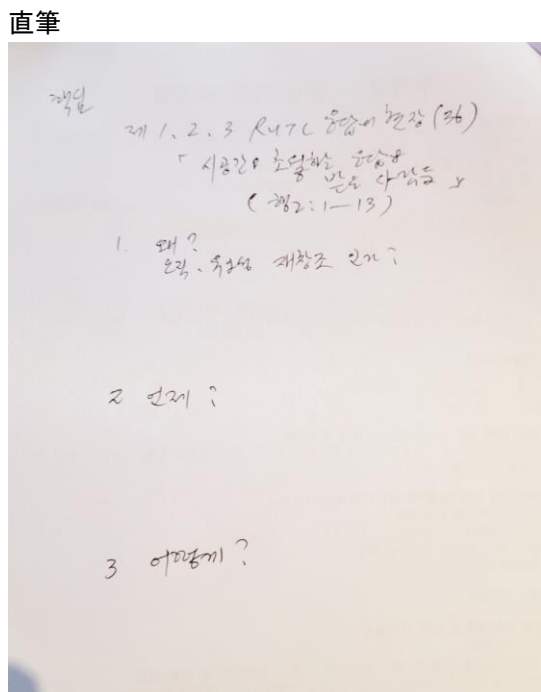 直筆
핵심
제 1, 2, 3 RUTC 응답의 현장 (36)
「시공간을 초월하는 응답을
받은 사람들」
(행2:1-13)
1. 왜?
오직. 유일성 재창조 인가?
2 언제?
3 어떻게?